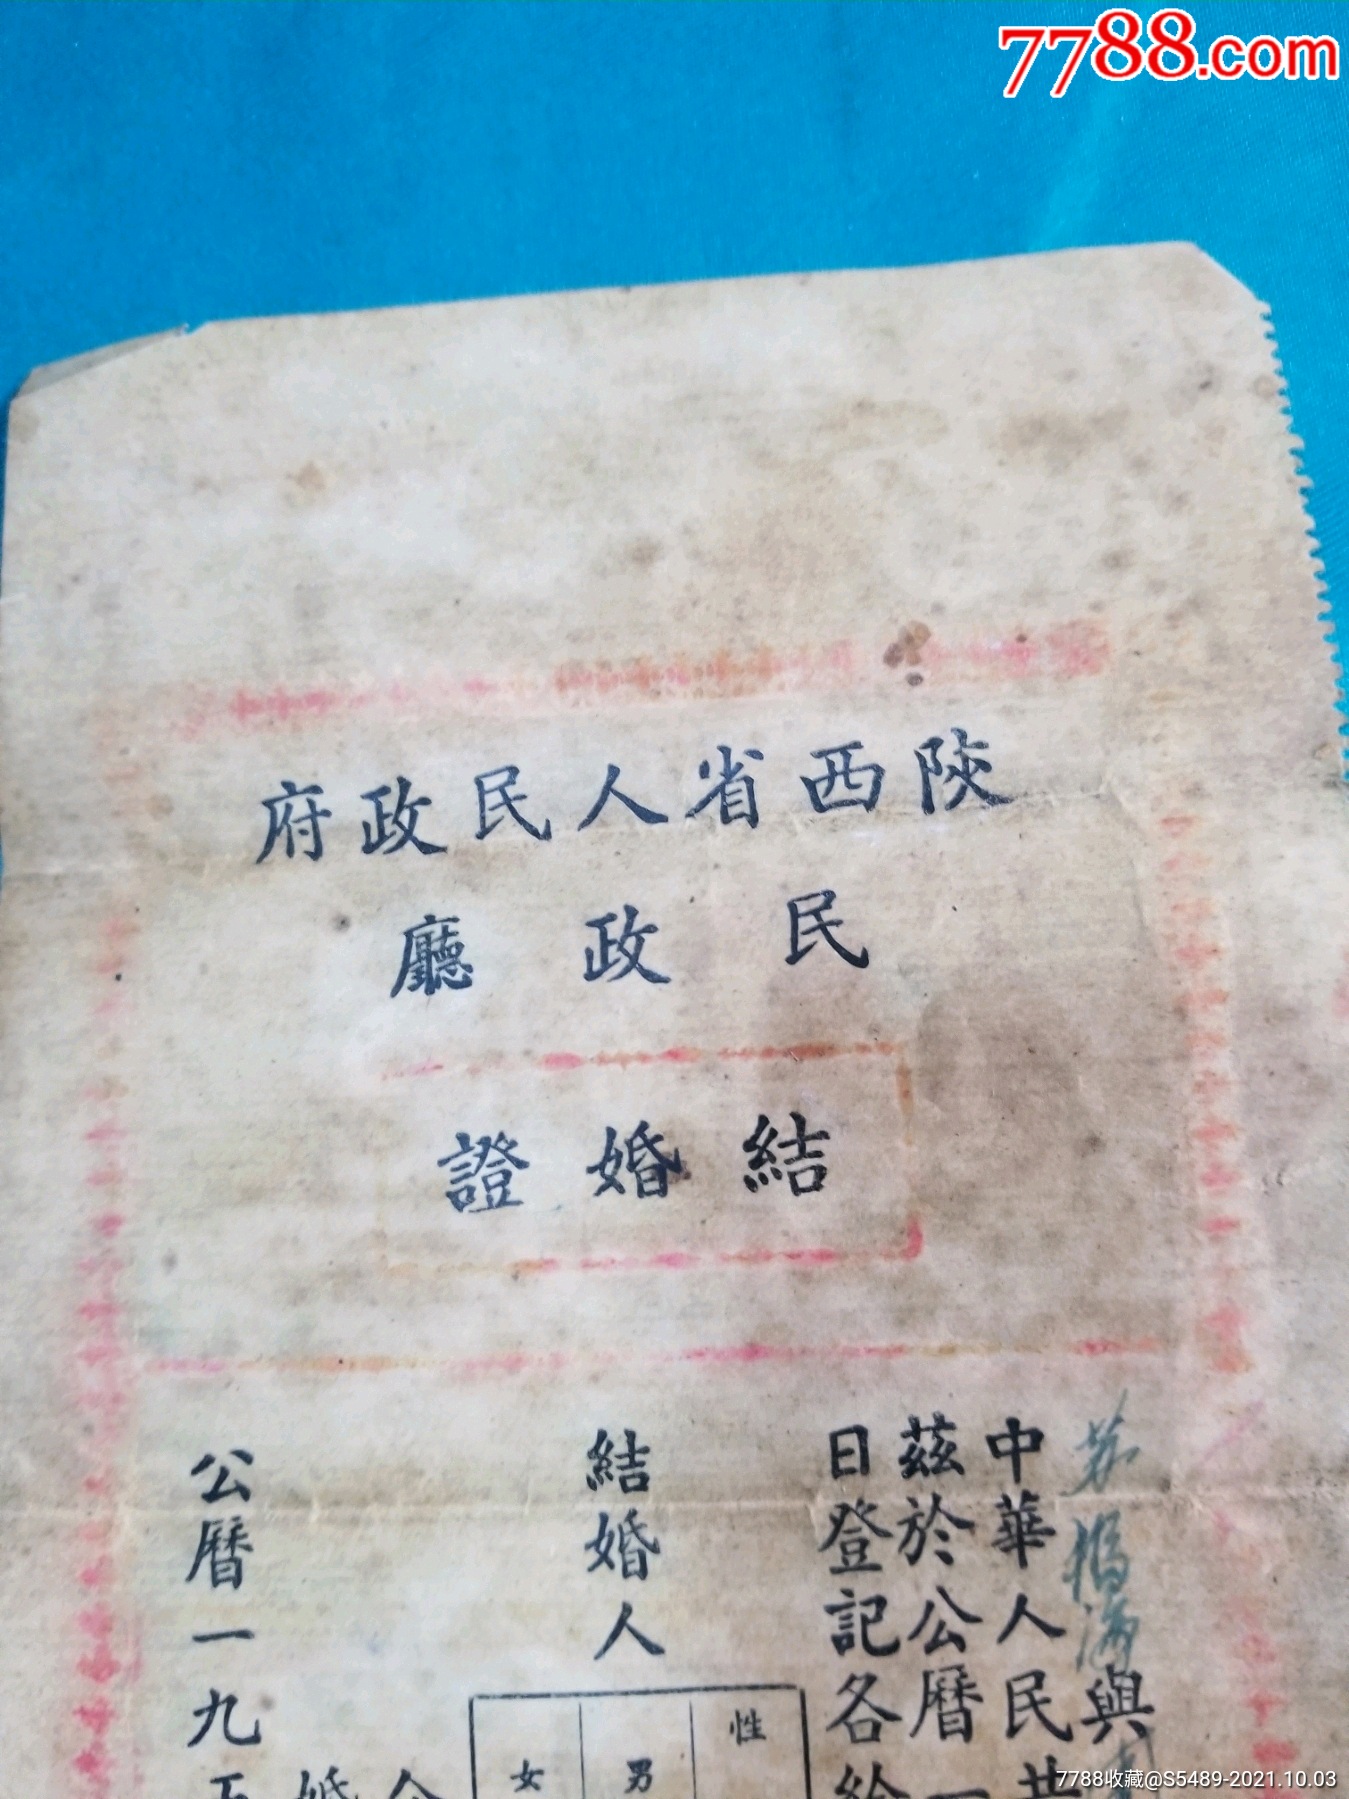 7788.com
陝西省人民政府
民政廳
結婚證
與
中華人民共
茲於公曆一
日登記各給
結婚人
性
男
女
公曆一九五
7788收藏@S5489-2021.10.03